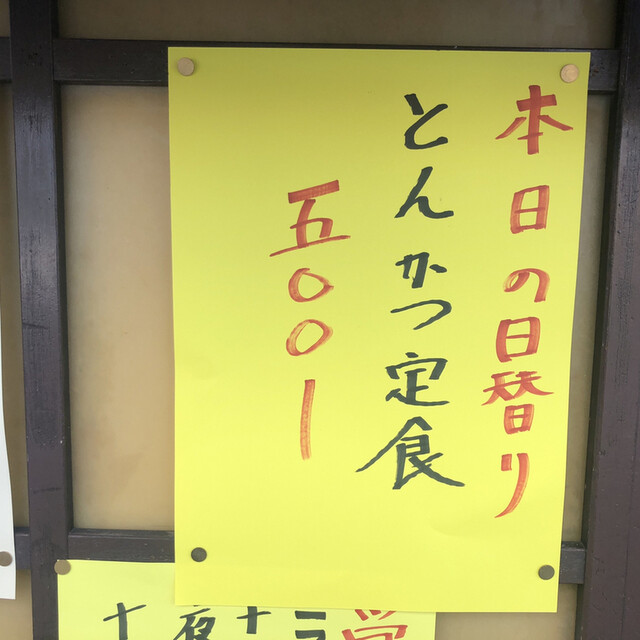 本日の日替り
とんかつ定食
五〇〇ー